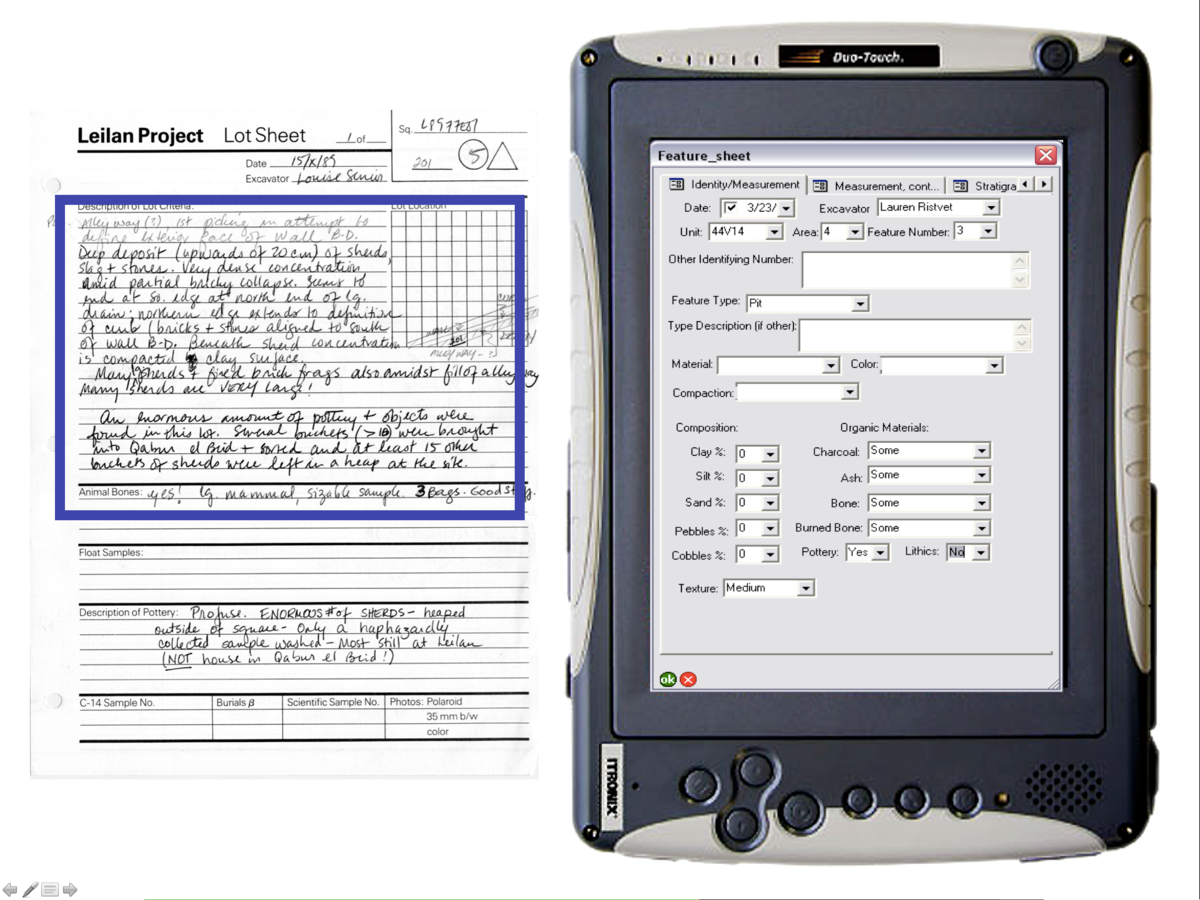 Leilan Project Lot Sheet 1 of
Sq. L8977E01
201 5
Date 15/X/89
Excavator Louise Senior
Description of Lot Criteria:
Lot Location
Alley way (?), 1st picking in attempt to
define exterior face of Wall B-D.
Deep deposit (upwards of 20 cm) of sherds,
slag + stones. Very dense concentration
amid partial bricky collapse. Seems to
end at so. edge at north end of lg.
drain; northern edge extends to definitive
of curb (bricks + stones aligned to south
of wall B-D. Beneath sherd concentration
is compacted clay surface.
Many sherds + fired brick frags also amidst fill of alleyway
Many sherds are VERY Large!
201
Alley way
An enormous amount of pottery + objects were
found in this lot. Several buckets (>10) were brought
into Qabur el Beid + sorted and at least 15 other
buckets of sherds were left in a heap at the site.
Animal Bones: yes! lg. mammal, sizable sample. 3 Bags. Good
Float Samples:
Description of Pottery: Profuse. ENORMOUS # of SHERDS - heaped
outside of square - Only a haphazardly
collected sample washed - Most still at Leilan
(NOT house in Qabur el Beid!)
C-14 Sample No. Burials β Scientific Sample No. Photos: Polaroid
35 mm b/w
color
Duo-Touch.
Feature_sheet
Identity/Measurement Measurement, cont... Stratigra
Date: 3/23/ Excavator Lauren Ristvet
Unit: 44V14 Area: 4 Feature Number: 3
Other Identifying Number:
Feature Type: Pit
Type Description (if other):
Material: Color:
Compaction:
Composition: Organic Materials:
Clay %: 0 Charcoal: Some
Silt %: 0 Ash: Some
Sand %: 0 Bone: Some
Pebbles %: 0 Burned Bone: Some
Cobbles %: 0 Pottery: Yes Lithics: No
Texture: Medium
ok
ITRONIX